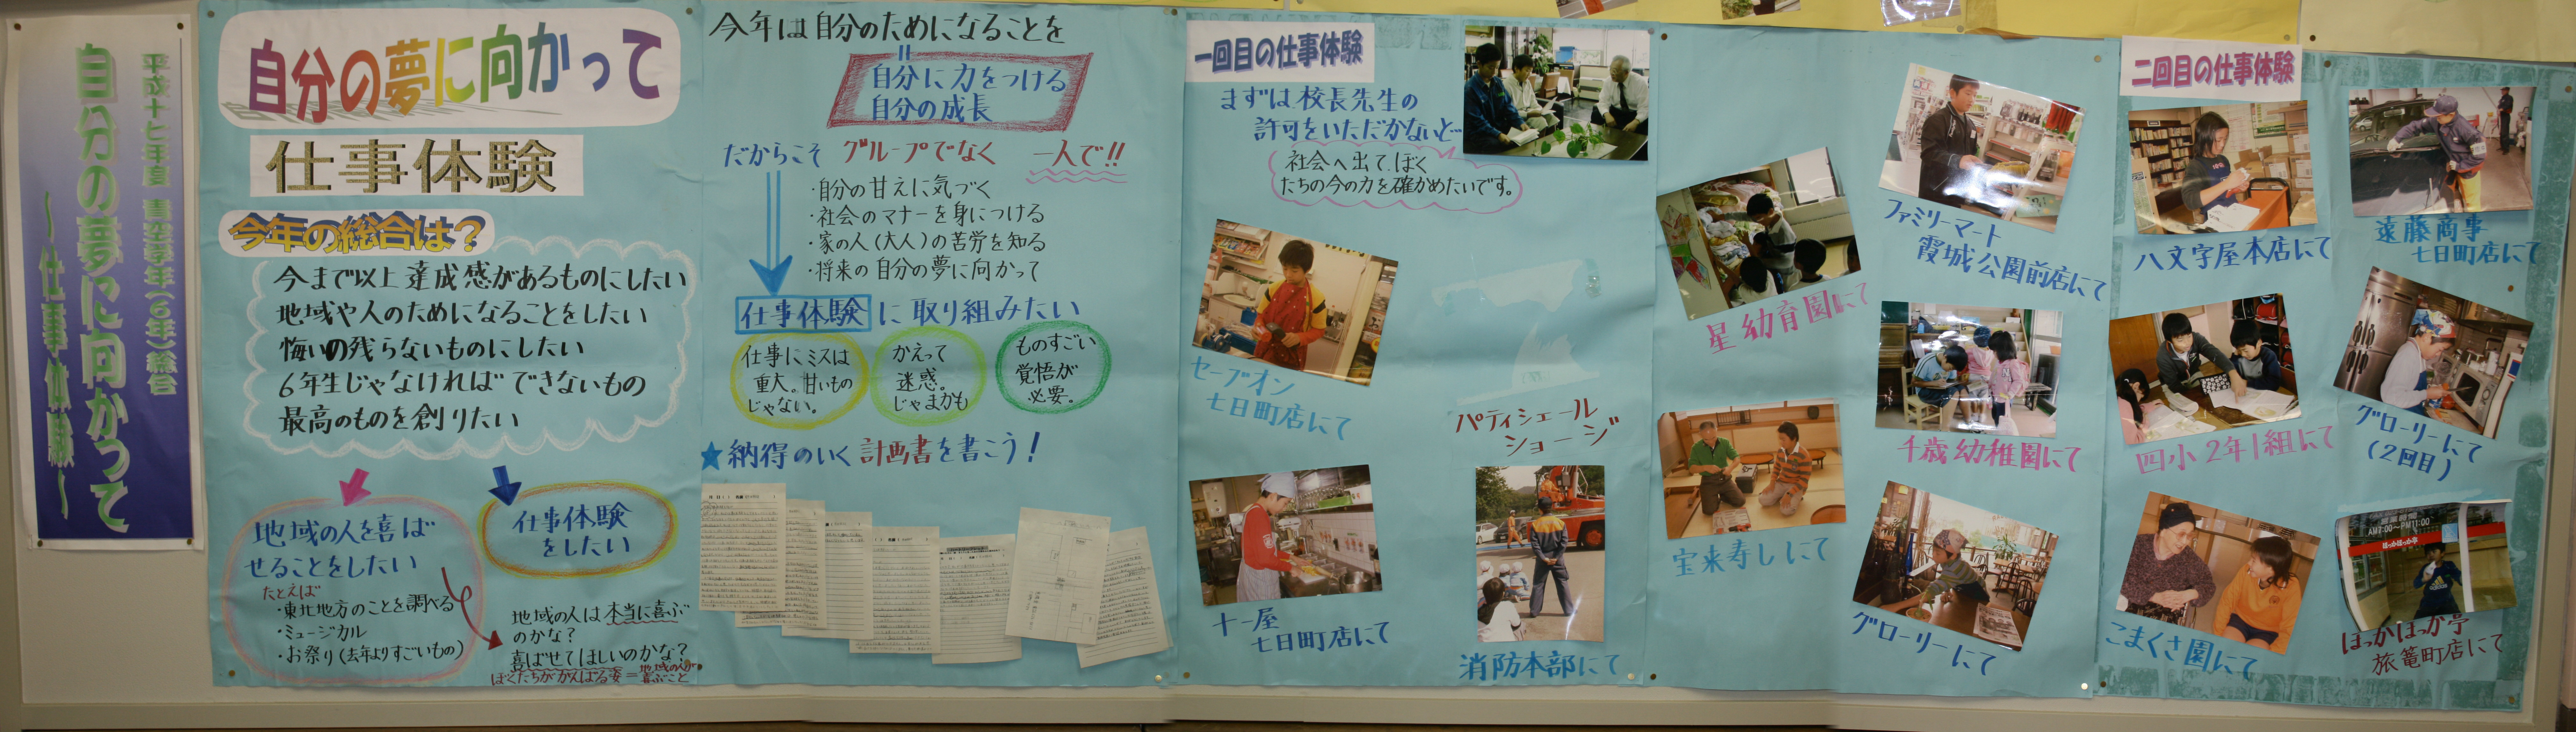 平成十七年度 青空学年(6年)総合
自分の夢に向かって
～仕事体験～
自分の夢に向かって
仕事体験
今年の総合は？
今まで以上達成感があるものにしたい
地域や人のためになることをしたい
悔いの残らないものにしたい
6年生じゃなければできないもの
最高のものを創りたい
地域の人を喜ば
せることをしたい
たとえば
・東北地方のことを調べる
・ミュージカル
・お祭り(去年よりすごいもの)
仕事体験
をしたい
地域の人は本当に喜ぶ
のかな？
喜ばせてほしいのかな？
ぼくたちががんばる姿＝地域の人が
喜ぶこと
今年は自分のためになることを
自分に力をつける
自分の成長
だからこそ グループでなく 一人で!!
・自分の甘えに気づく
・社会のマナーを身につける
・家の人(大人)の苦労を知る
・将来の自分の夢に向かって
仕事体験に取り組みたい
仕事にミスは
重大。甘いもの
じゃない。
かえって
迷惑。
じゃまかも
ものすごい
覚悟が
必要。
★納得のいく計画書を書こう！
一回目の仕事体験
まずは校長先生の
許可をいただかないと…
社会へ出て、ぼく
たちの今の力を確かめたいです。
セーブオン
七日町店にて
パティシェール
ショージ
十一屋
七日町店にて
消防本部にて
星幼育園にて
ファミリーマート
霞城公園前店にて
千歳幼稚園にて
宝来寿しにて
グローリーにて
二回目の仕事体験
八文字屋本店にて
遠藤商事
七日町店にて
四小2年1組にて
グローリーにて
(2回目)
こまくさ園にて
AM7:00～PM11:00
ほっかほっか亭
ほっかほっか亭
旅篭町店にて